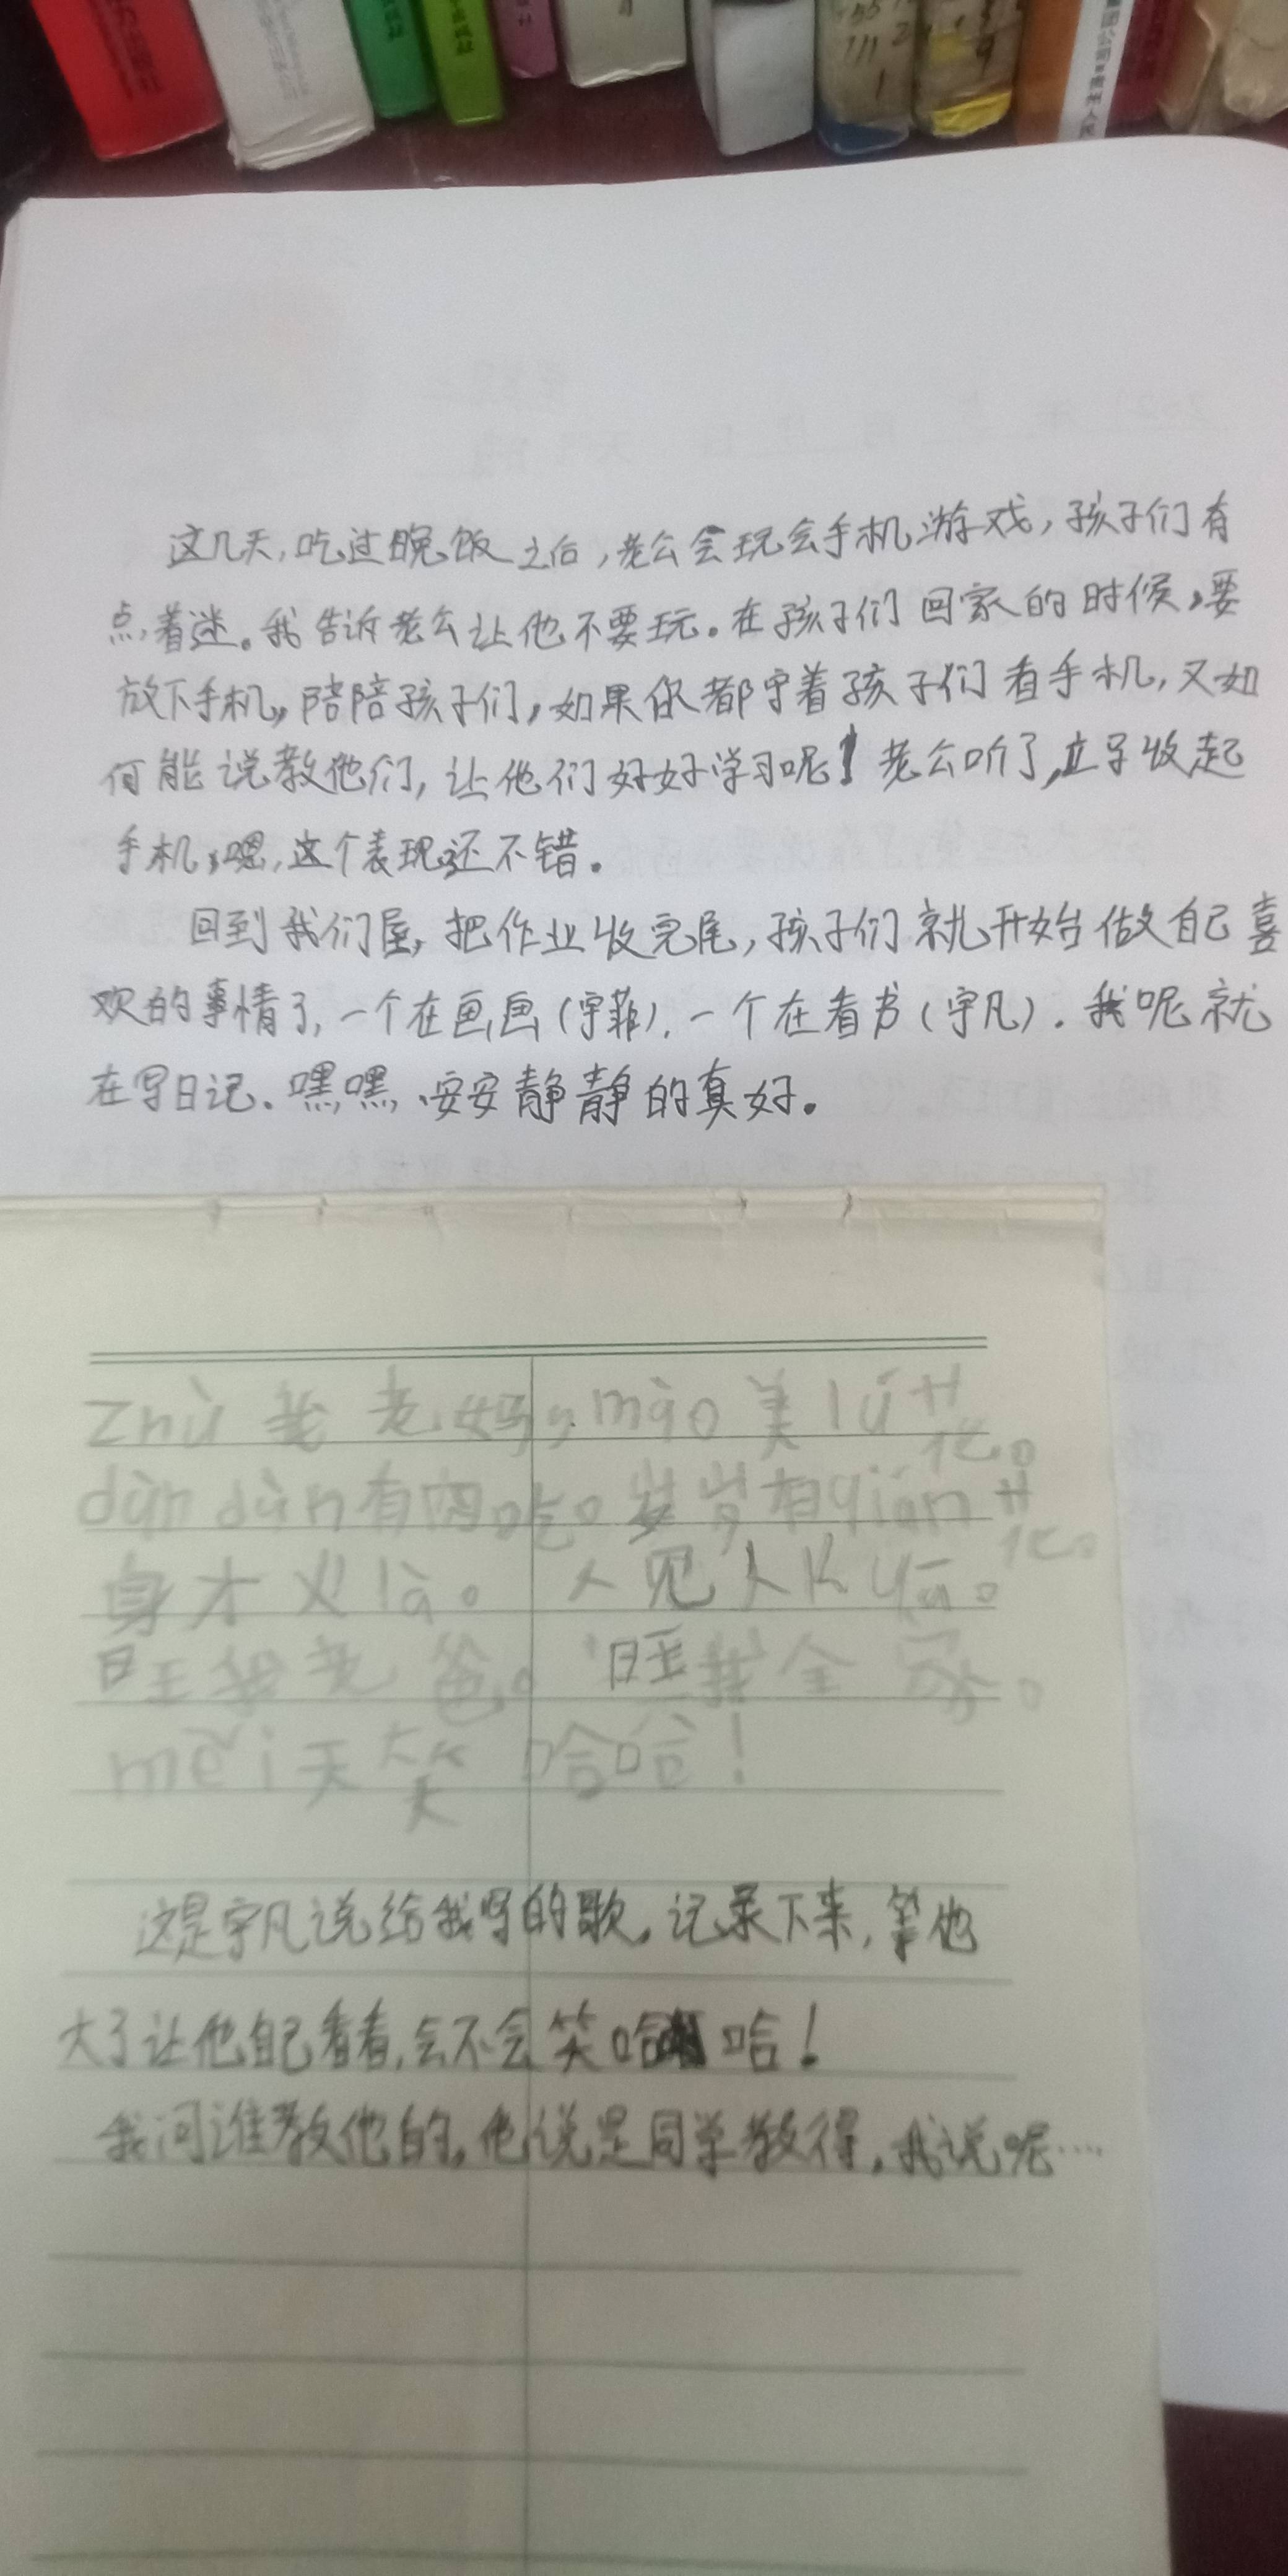 这几天,吃过晚饭之后,老公会玩会手机游戏,孩子们有
点着迷。我告诉老公让他不要玩。在孩子们回家的时候,要
放下手机,陪陪孩子们,如果你都守着孩子们看手机,又如
何能说教他们,让他们好好学习呢!老公听了,立马收起
手机,嗯,这个表现还不错。
回到我们屋,把作业收完尾,孩子们就开始做自己喜
欢的事情了,一个在画画(宇菲),一个在看书(宇凡).我呢就
在写日记.嘿嘿,安安静静的真好。
zhù我老妈,mào美lú花。
dùn dùn有肉吃。岁岁有qián花。
身才火là。人见人K yā。
旺我老爸。旺我全家。
měi天笑哈哈!
这是宇凡说给我写的歌,记录下来,等他
大了让他自己看看,会不会笑哈哈!
我问谁教他的,他说是同学教得,我说呢…